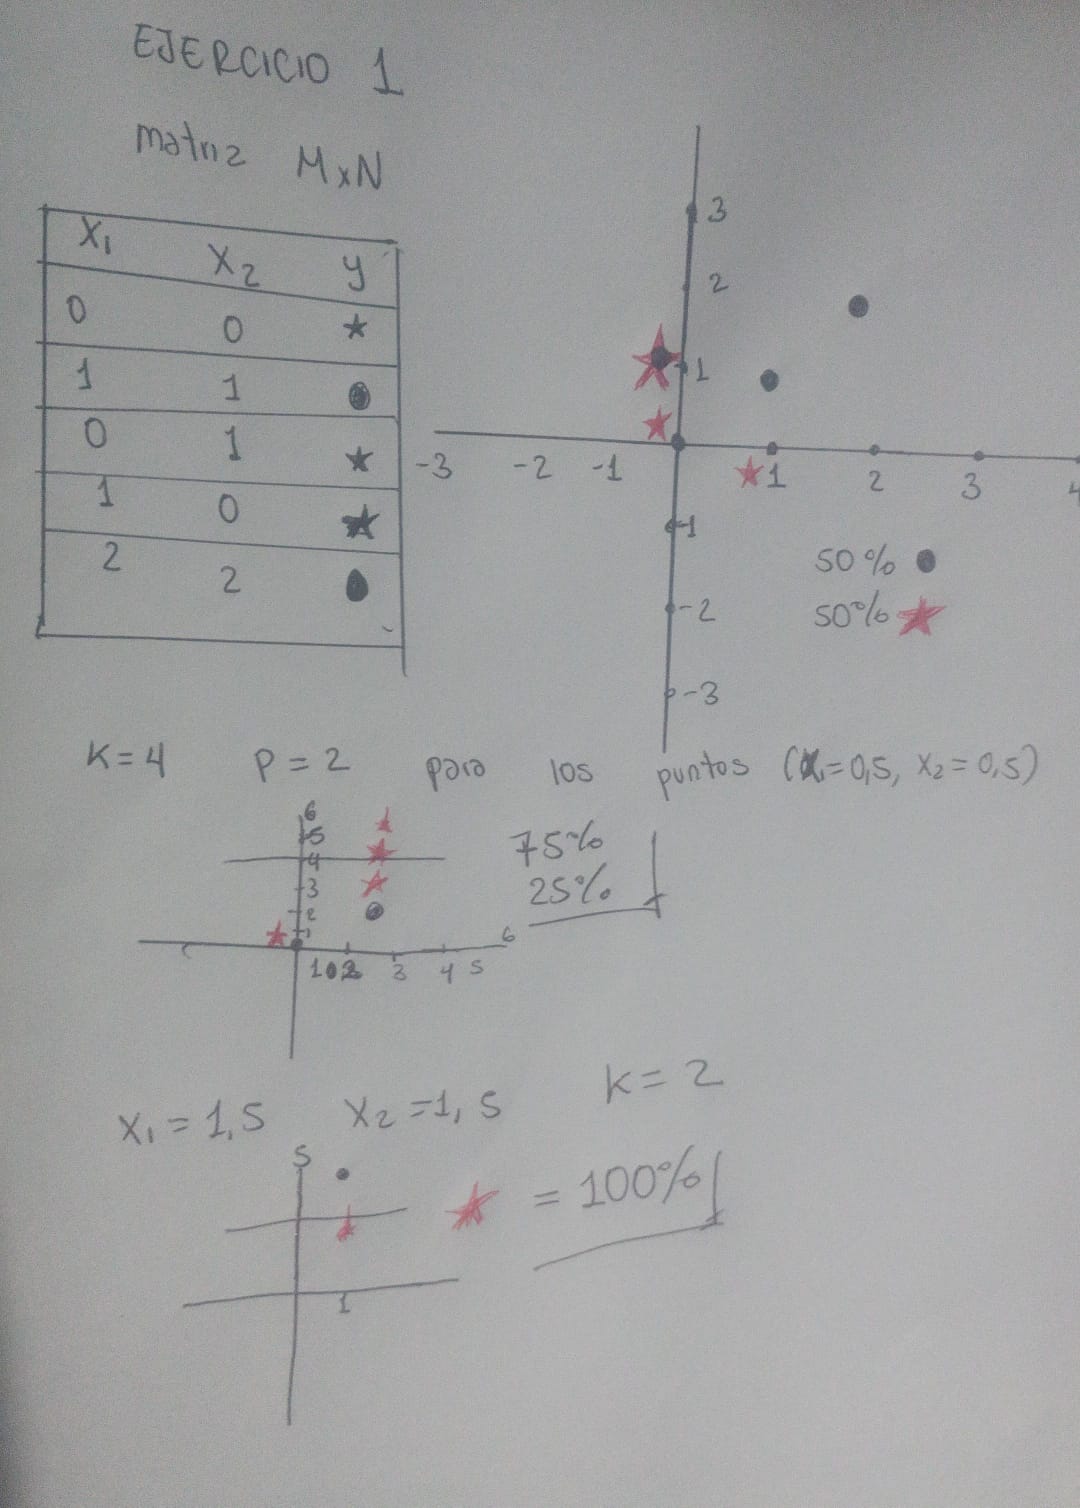 EJERCICIO 1
matriz MxN
X₁ X₂ y
0 0 ★
1 1 ●
0 1 ★
1 0 ★
2 2 ●
3
2
1
-3 -2 -1 1 2 3 4
-1
-2
-3
50% ●
50% ★
K=4 P=2 para los puntos (X₁=0,5, X₂=0,5)
6
5
4
3
2
1
1 0 2 3 4 5 6
75%
25%
X₁=1,5 X₂=1,5 K=2
5
★ = 100%
1